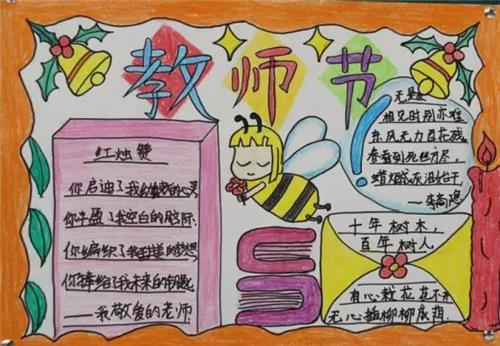 教师节
红烛赞
你启迪了我的心灵
你丰盈了我空白的脑际
你编织了我的梦想
你捧给了我未来的
——我敬爱的老师
无题
相见时别亦难
东风无力百花残
春蚕到死丝方尽,
蜡炬成灰泪始干
——李商隐
十年树木,
百年树人
有心栽花花不开
无心插柳柳成荫